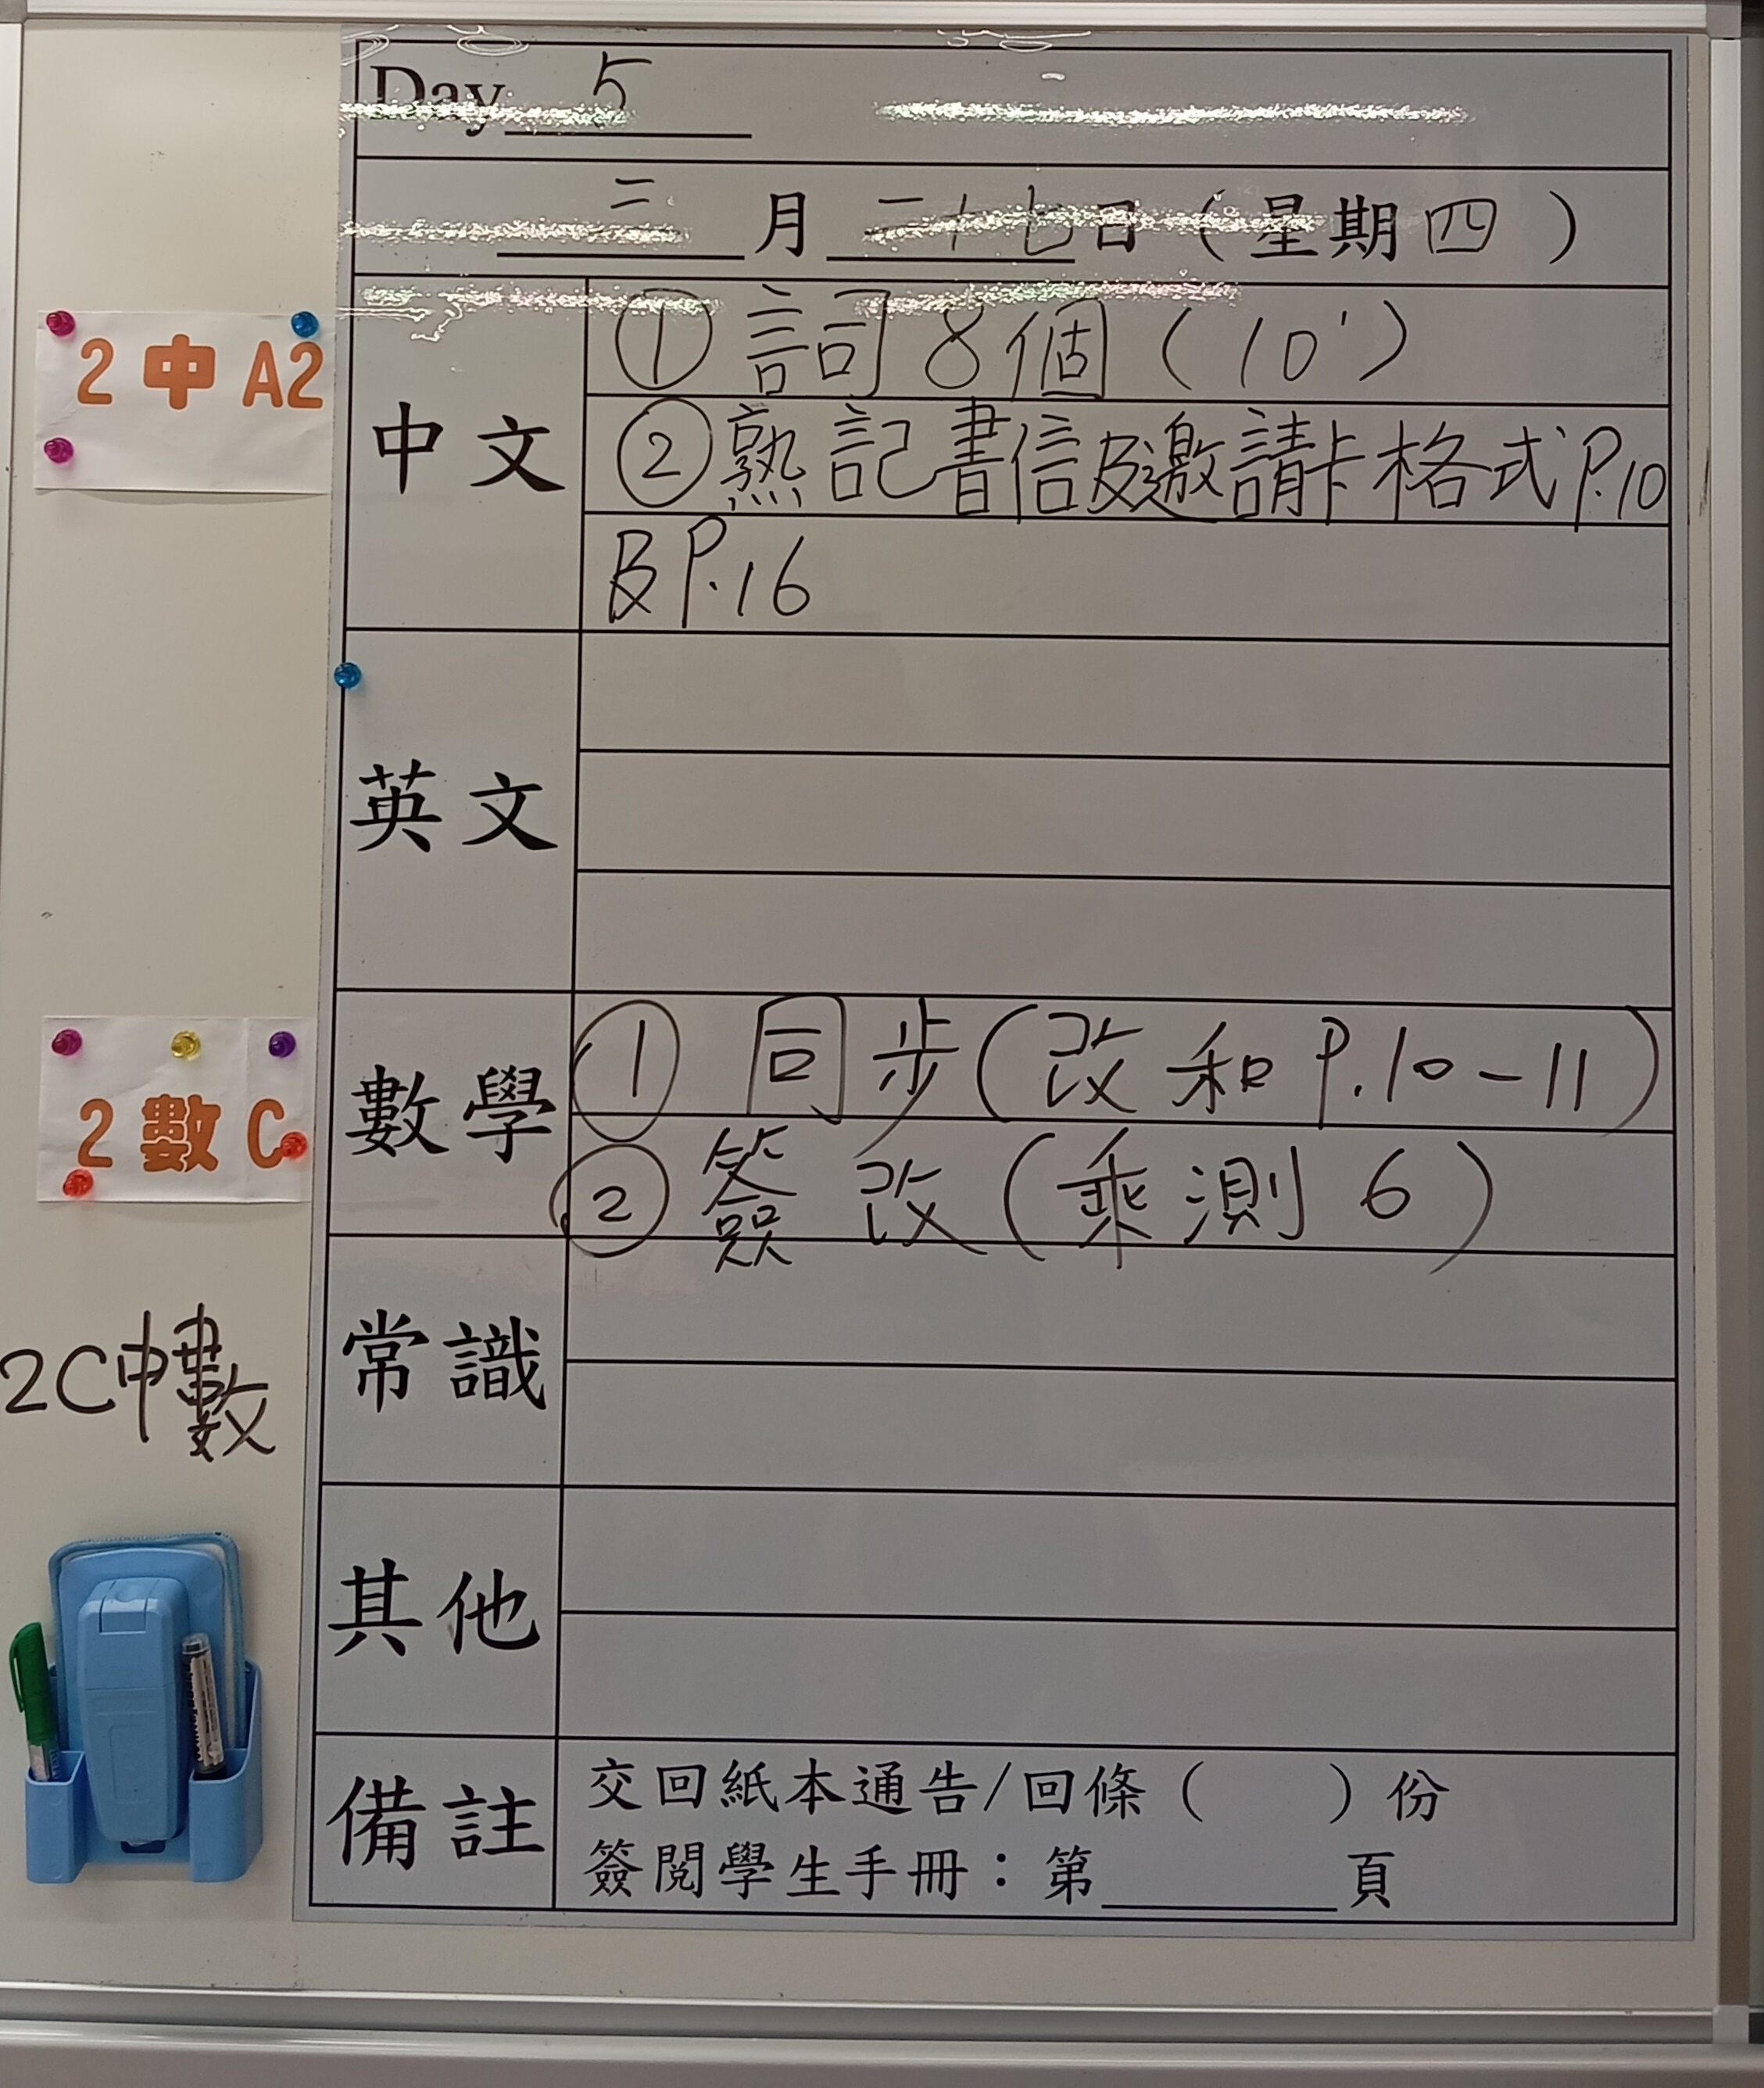 Day 5
三月二十七日（星期四）
2 中 A2
中文
①詞8個（10'）
②熟記書信及邀請卡格式P.10
及P.16
英文
2 數 C
數學
①同步(改和P.10-11)
②簽改(乘測6)
2C中數
常識
其他
備註
交回紙本通告/回條（　　）份
簽閱學生手冊：第______頁